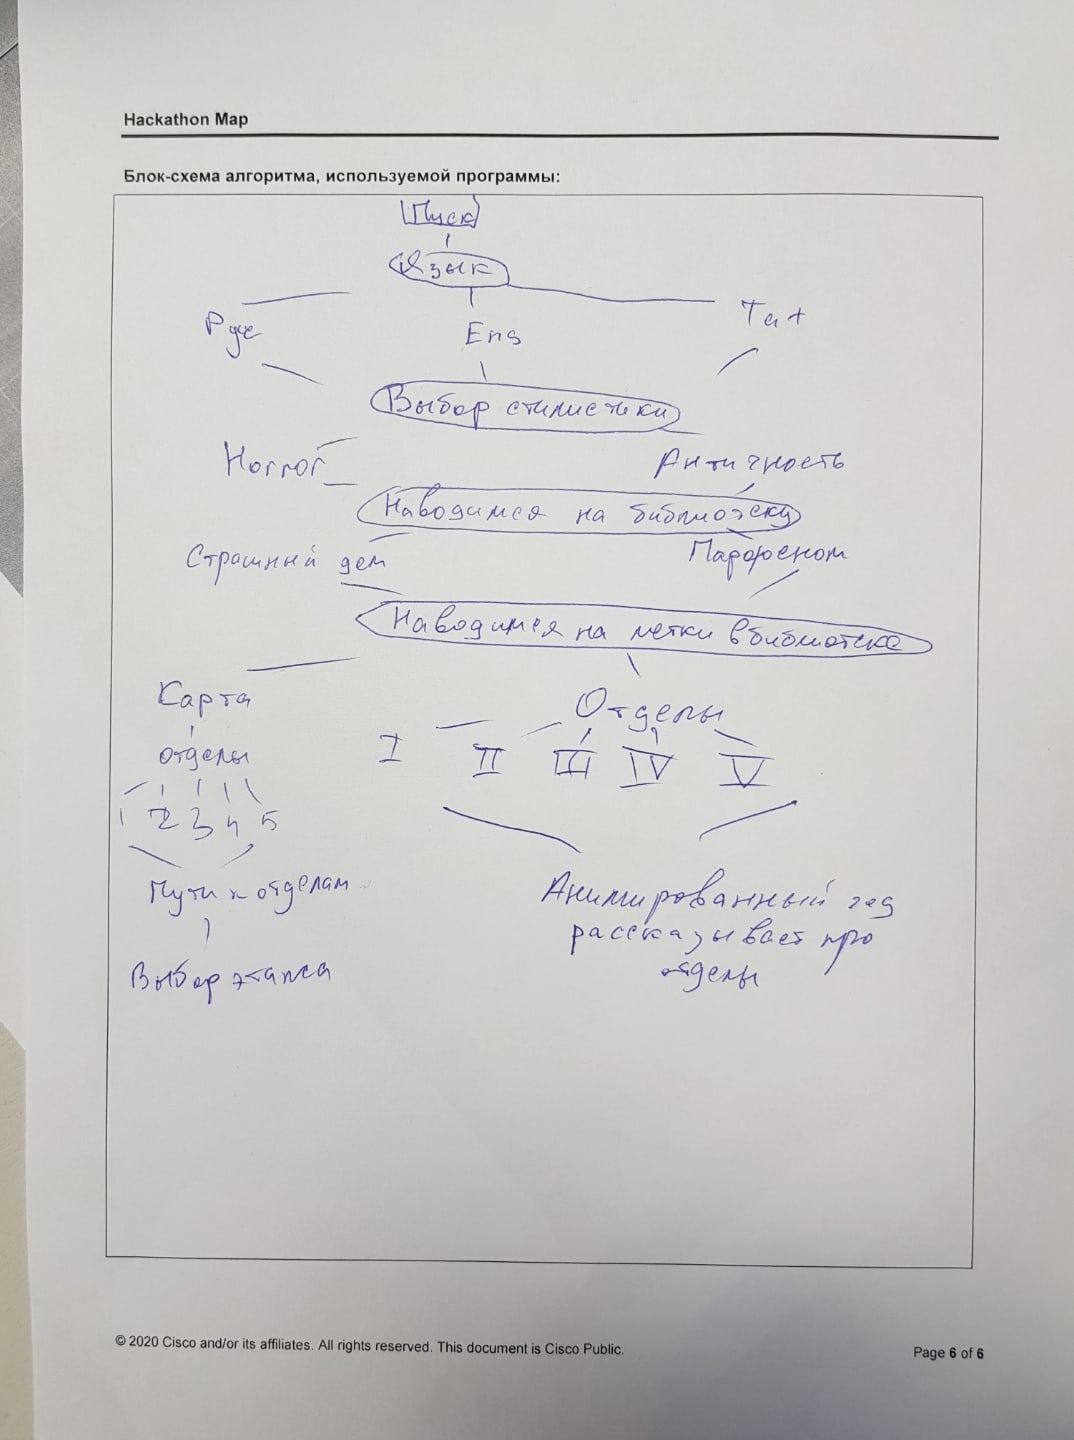 Hackathon Map
Блок-схема алгоритма, используемой программы:
Пуск
Язык
Рус Eng Tat
Выбор стилистики
Horror Античность
Наводимся на библиотеку
Страшный дом Парфеном
Наводимся на метки в библиотеке
Карта Отделы
отделы I II III IV V
1 2 3 4 5
Пути к отделам Анимированный гид
рассказывает про
Выбор этапа отделы
© 2020 Cisco and/or its affiliates. All rights reserved. This document is Cisco Public. Page 6 of 6